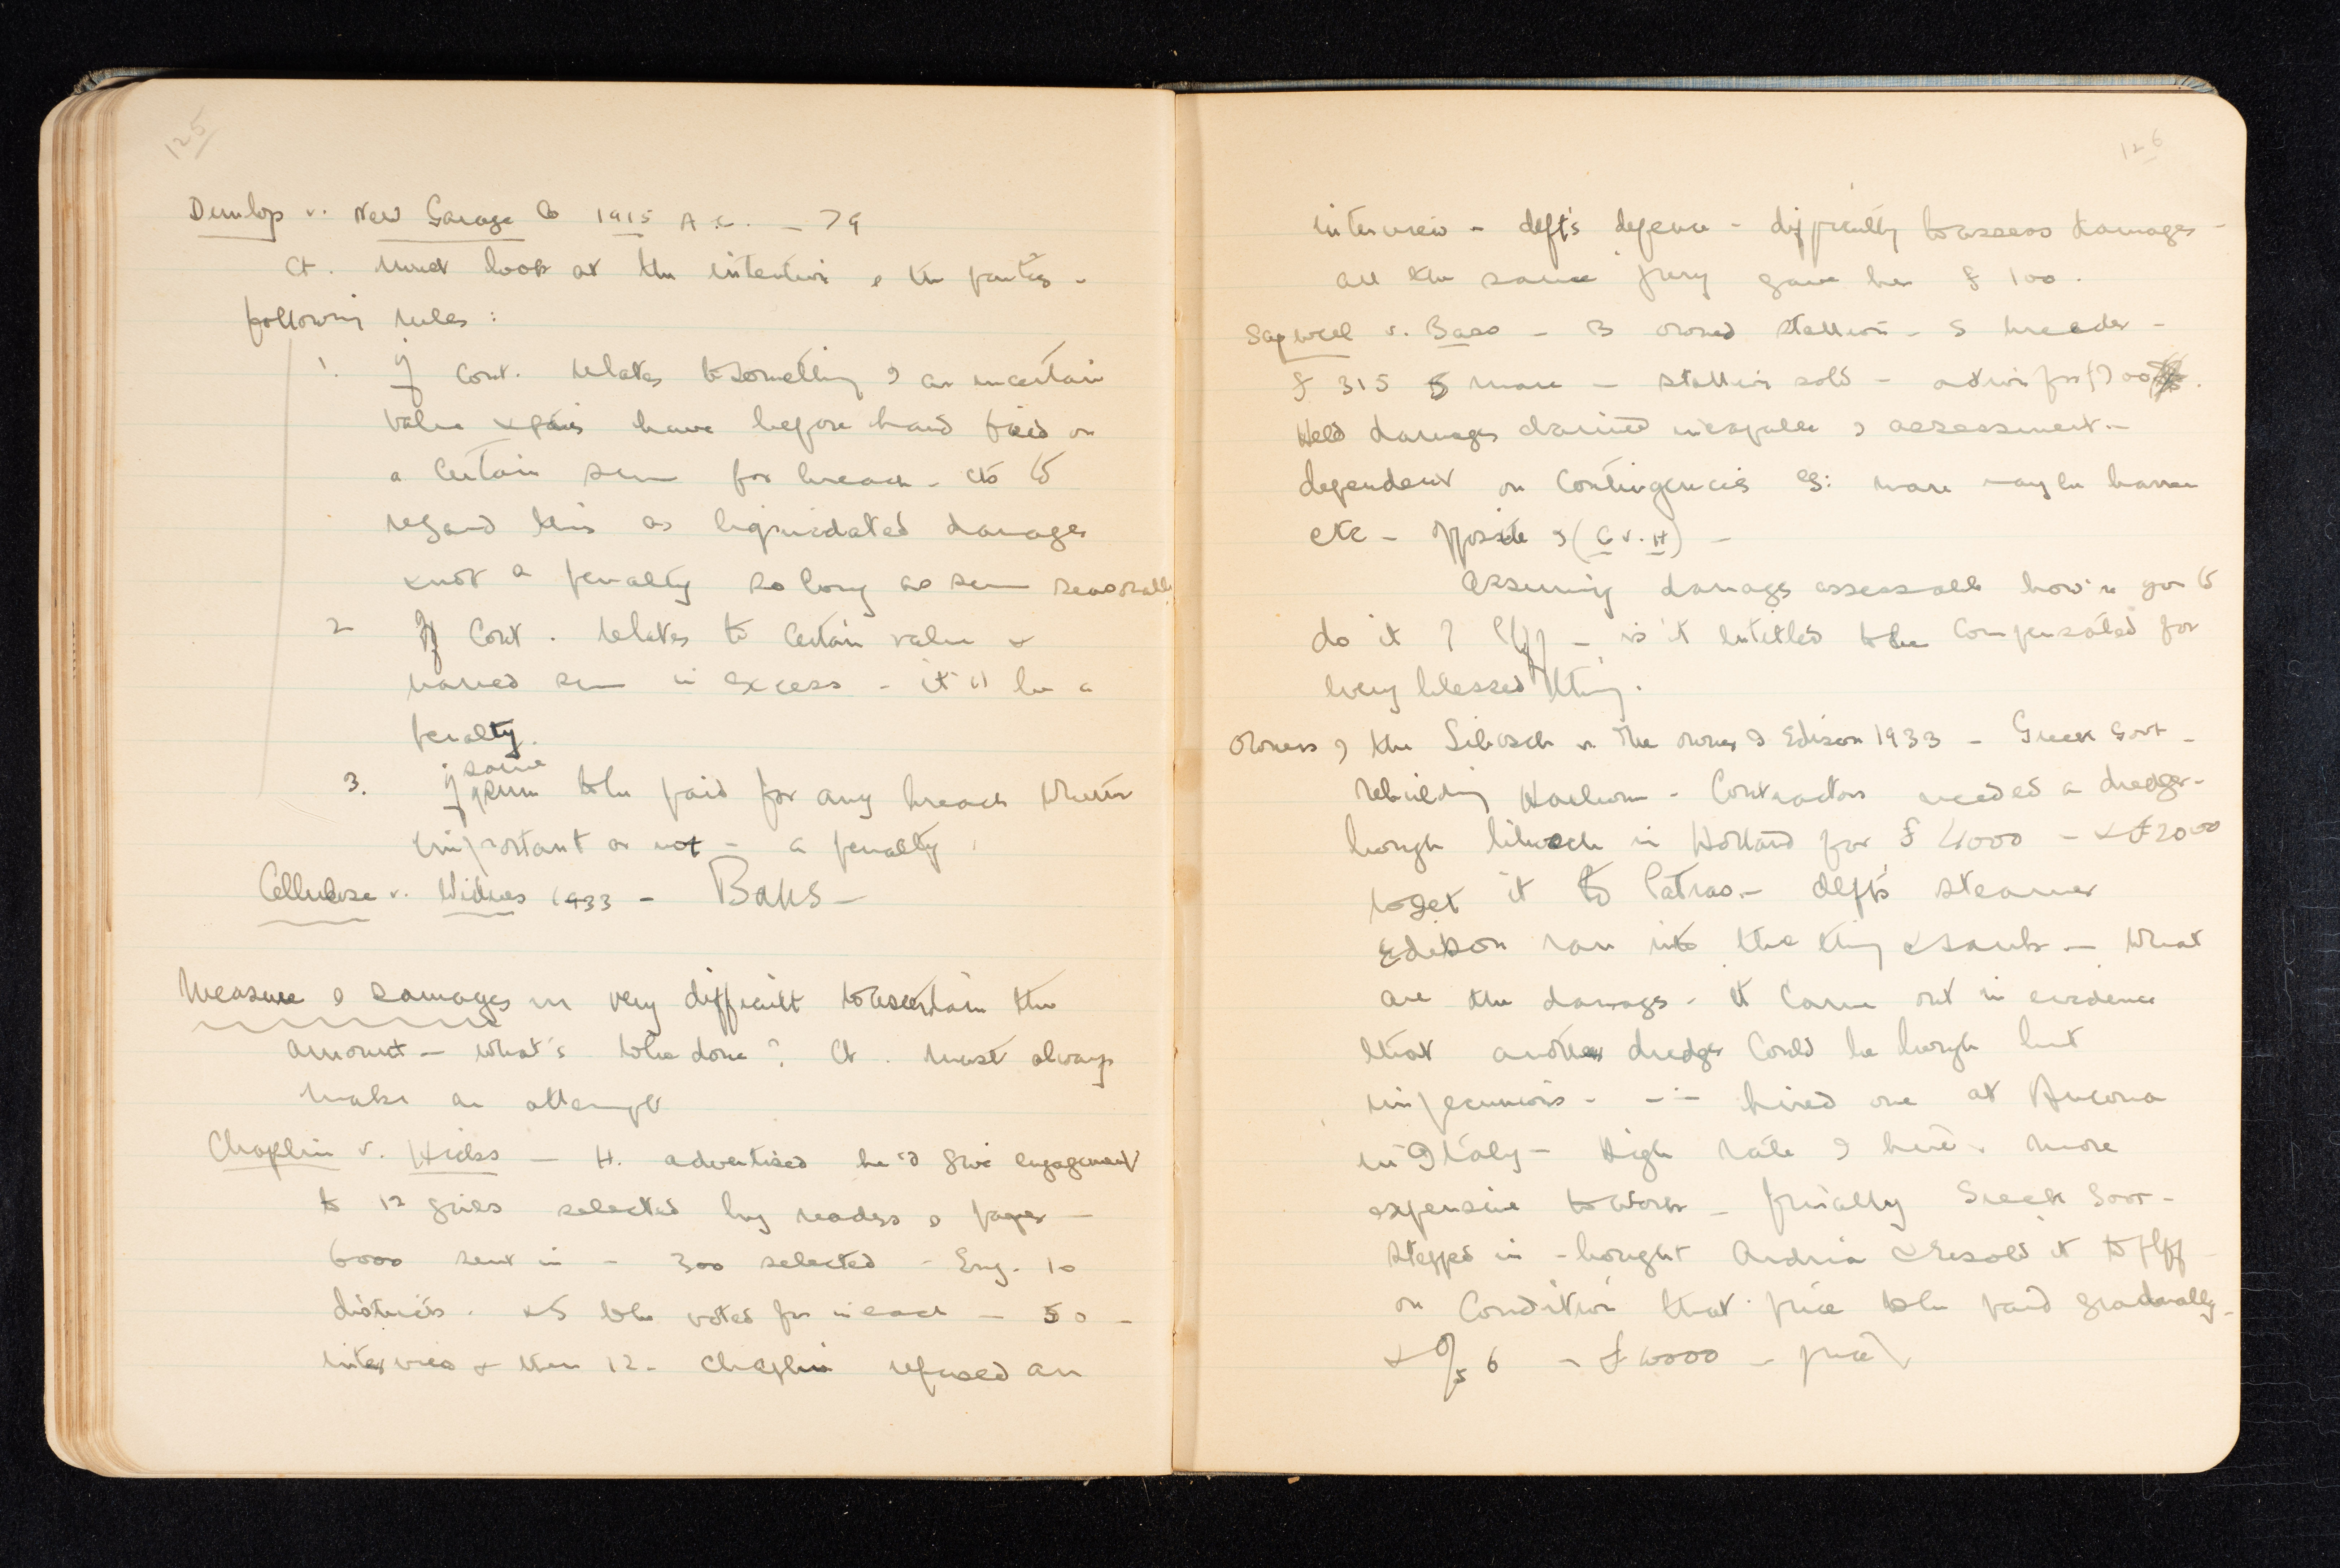 125
Dunlop v. New Garage Co 1915 A.C. - 79
Ct. must look at the intention o the parties -
following rules:
1. If Cont. relates to something o an uncertain
value & parties have before hand fixed on
a certain sum for breach - cts 'll
regard this as liquidated damages
& not a penalty so long as sum reasonable
2 If Cont. relates to certain value &
named sum in excess - it 'll be a
penalty.
3. if same sum to be paid for any breach whether
important or not - a penalty.
Cellulose v. Widnes 1933 -
Measure o damages in very difficult to ascertain the
amount - what's to be done? Ct. must always
make an attempt
Chaplin v. Hicks - H. advertised he'd give engagement
to 12 girls selected by readers o paper -
6000 sent in - 300 selected - Eng. 10
districts. & 5 to be voted for in each - 50 -
interviews & then 12 - Chaplin refused an
126
interview - deft's defence - difficulty to assess damages -
all the same jury gave her £ 100.
Sapwell v. Bass - B owned stallion - S breeder -
£ 315 mare - stallion sold -
Held damages claimed incapable o assessment -
dependent on contingencies eg: mare may be barren
etc - opposite o (C v. H) -
Assuming damages assessable how 'll you
do it? Plff - is it entitled to be compensated for
every blessed thing.
Owners o the Libosch v The owners o Edison 1933 - Greek Govt -
rebuilding Harbour - Contractors needed a dredger -
bough libosch in Holland for £ 4000 - & £2000
to get it to Patras - deft's steamer
Edison ran into the thing & sank - What
are the damages - it came out in evidence
that another dredger could be bough but
impecunious - -- hired one at Ancona
in Italy - High rate o hire. more
expensive to work - finally Greek Govt -
stepped in - bought Adria & resold it to plff -
on condition that price to be paid gradually -